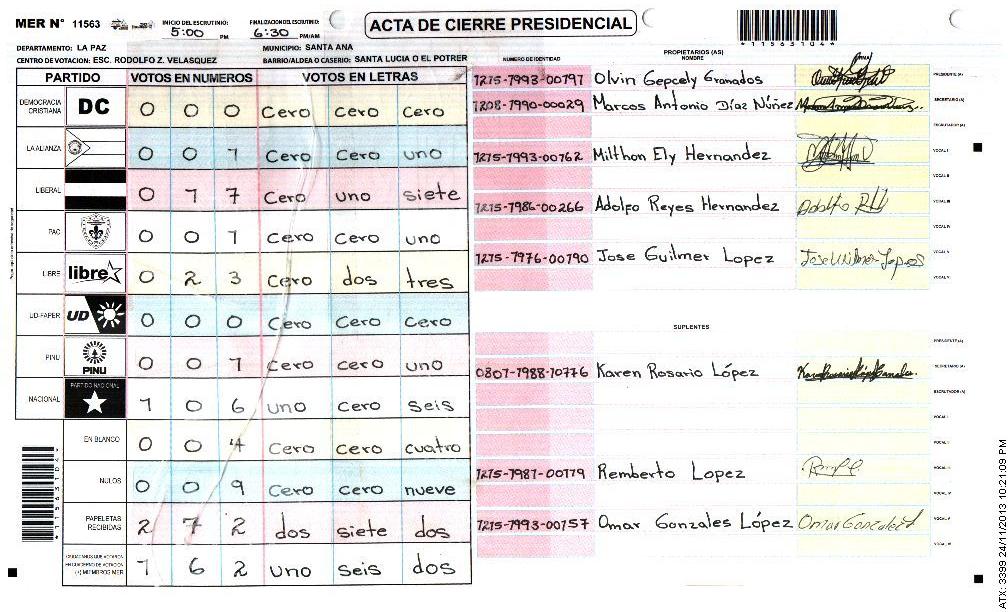 MER N° 11563
INICIO DEL ESCRUTINIO: 5:00 PM
FINALIZACION DEL ESCRUTINIO: 6:30 PM/AM
ACTA DE CIERRE PRESIDENCIAL
*11563104*
DEPARTAMENTO: LA PAZ
MUNICIPIO: SANTA ANA
CENTRO DE VOTACION: ESC. RODOLFO Z. VELASQUEZ
BARRIO/ALDEA O CASERIO: SANTA LUCIA O EL POTRER
PARTIDO VOTOS EN NUMEROS VOTOS EN LETRAS
DEMOCRACIA CRISTIANA DC 0 0 0 Cero Cero Cero
LA ALIANZA 0 0 1 Cero Cero uno
LIBERAL 0 1 7 Cero uno siete
PAC 0 0 1 Cero Cero uno
LIBRE libre 0 2 3 Cero dos tres
UD-FAPER UD 0 0 0 Cero Cero Cero
PINU PINU 0 0 1 Cero Cero uno
NACIONAL PARTIDO NACIONAL 1 0 6 uno cero seis
EN BLANCO 0 0 4 Cero cero cuatro
NULOS 0 0 9 Cero cero nueve
PAPELETAS RECIBIDAS 2 7 2 dos siete dos
CIUDADANOS QUE VOTARON EN CUADERNO DE VOTACION (+) MIEMBROS MER 1 6 2 uno seis dos
*11563104*
PROPIETARIOS (AS)
NUMERO DE IDENTIDAD NOMBRE
1215-1993-00791 Olvin Gepcely Granados PRESIDENTE (A)
1208-1990-00029 Marcos Antonio Díaz Núñez SECRETARIO (A)
ESCRUTADOR (A)
1215-1993-00762 Milthon Ely Hernandez VOCAL I
VOCAL II
1215-1986-00266 Adolfo Reyes Hernandez VOCAL III
VOCAL IV
1215-1976-00190 Jose Guilmer Lopez VOCAL V
VOCAL VI
SUPLENTES
PRESIDENTE (A)
0807-1988-10776 Karen Rosario López SECRETARIO (A)
ESCRUTADOR (A)
VOCAL I
VOCAL II
1215-1987-00179 Remberto Lopez VOCAL III
VOCAL IV
1215-1993-00157 Omar Gonzales López VOCAL V
VOCAL VI
ATX: 3399 24/11/2013 10:21:09 PM